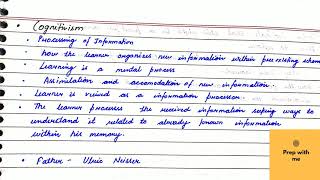 Cognitivism
Processing of Information
how the learner organizes new information within pre existing schema
Learning is a mental process
Assimilation and accomodation of new information.
Learner is viewed as a information processor.
The learner processes the received information seeking ways to
understand it related to already known information
within his memory.
Father - Ulric Neisser
Prep with
me